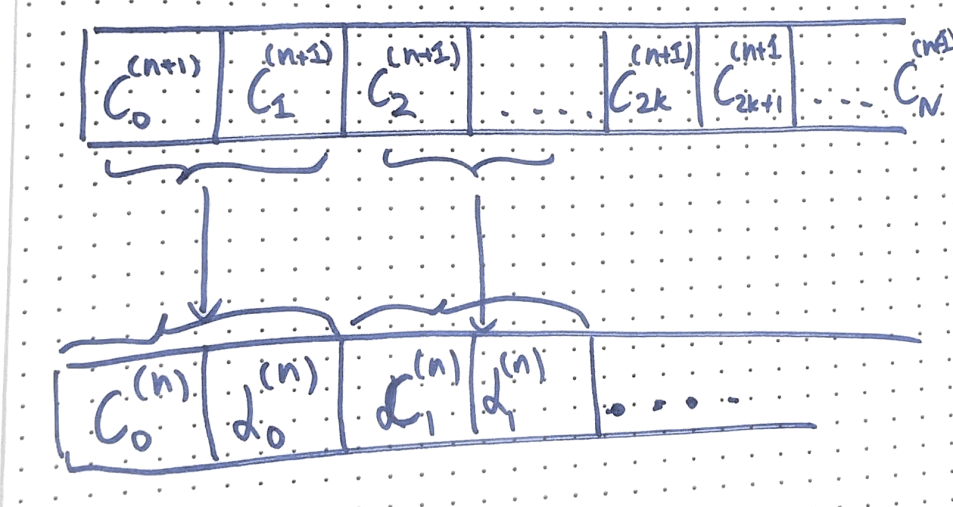 C₀⁽ⁿ⁺¹⁾ C₁⁽ⁿ⁺¹⁾ C₂⁽ⁿ⁺¹⁾ ..... C₂ₖ⁽ⁿ⁺¹⁾ C₂ₖ₊₁⁽ⁿ⁺¹ .... C_N⁽ⁿ⁺¹⁾
C₀⁽ⁿ⁾ d₀⁽ⁿ⁾ C₁⁽ⁿ⁾ d₁⁽ⁿ⁾ ....